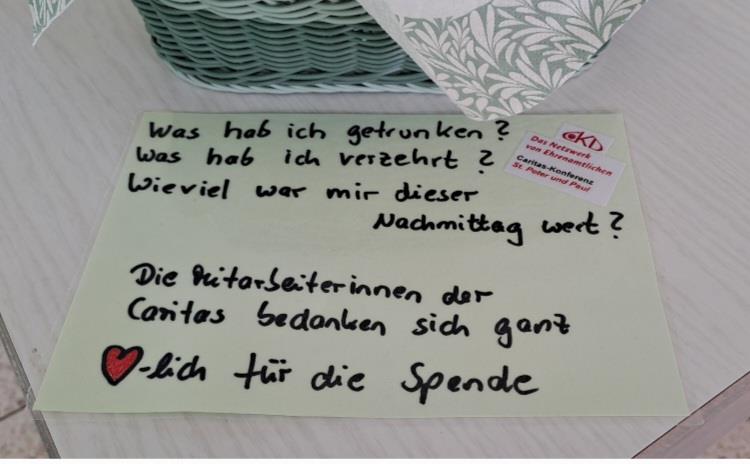 Was hab ich getrunken?
Was hab ich verzehrt?
Wieviel war mir dieser
Nachmittag wert?
Die Mitarbeiterinnen der
Caritas bedanken sich ganz
❤-lich für die Spende
CKD
Das Netzwerk
von Ehrenamtlichen
Caritas-Konferenz
St. Peter und Paul